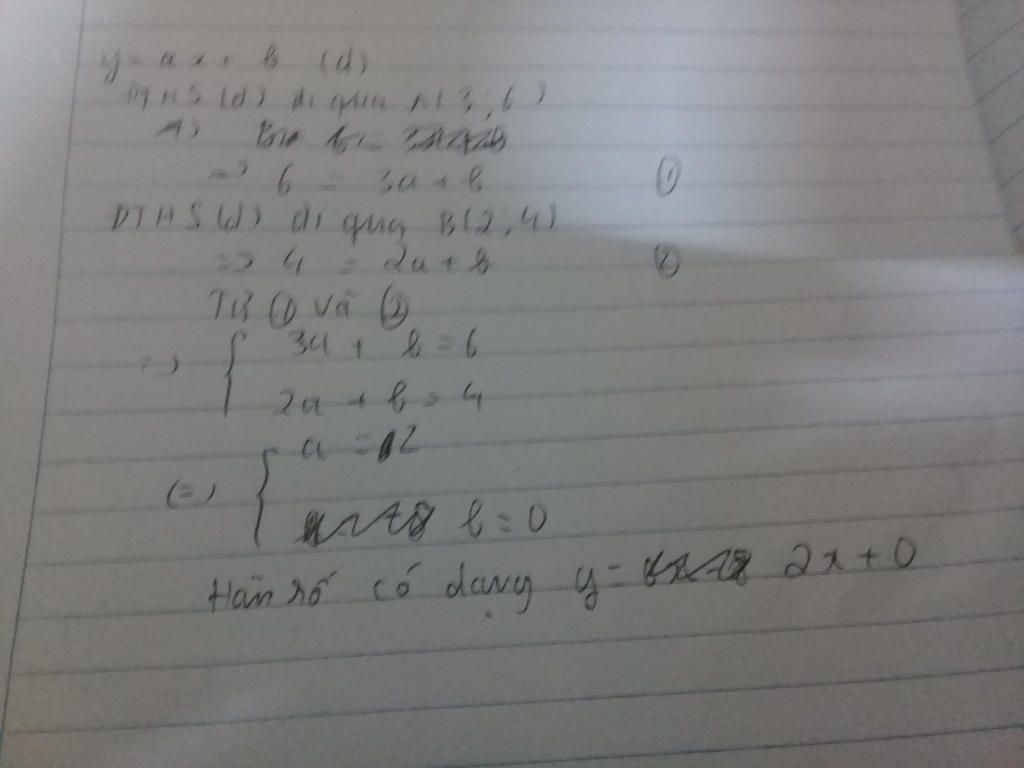 y = ax + b (d)
ĐTHS (d) đi qua A(3; 6)
=> 6 = 3a + b ①
ĐTHS (d) đi qua B(2; 4)
=> 4 = 2a + b ②
Từ ① và ②
=> { 3a + b = 6
2a + b = 4
(=) { a = 2
b = 0
Hàn số có dạng y = 2x + 0